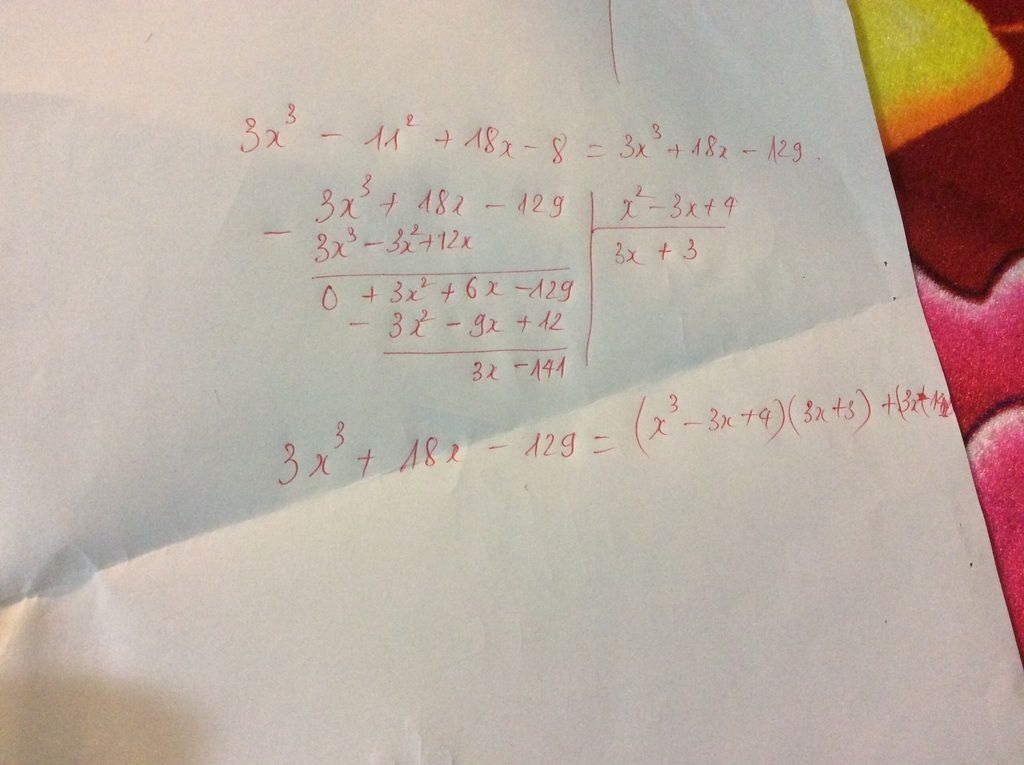 3x³ - 11² + 18x - 8 = 3x³ + 18x - 129.
3x³ + 18x - 129 | x² - 3x + 4
- 3x³ - 3x² + 12x | 3x + 3
0 + 3x² + 6x - 129
- 3x² - 9x + 12
3x - 141
3x³ + 18x - 129 = (x³ - 3x + 4)(3x + 3) + (3x